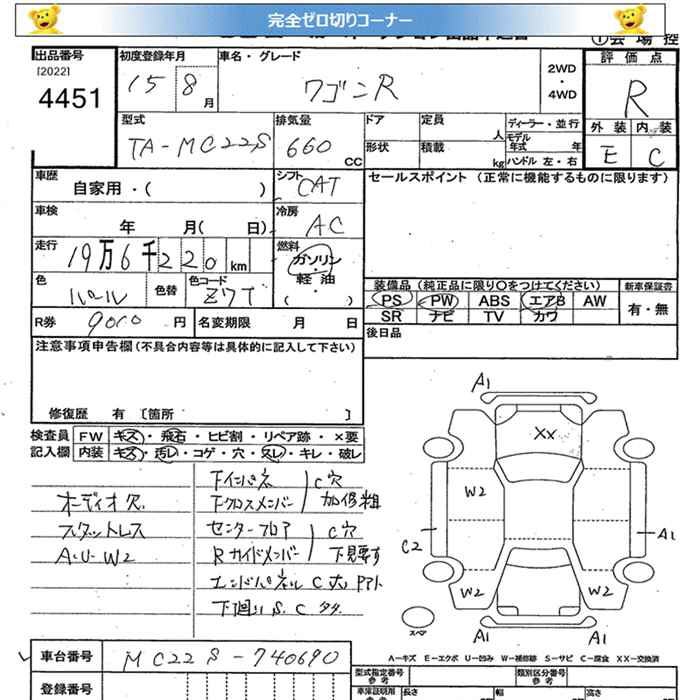 完全ゼロ切りコーナー
出品番号
[2022]
4451
初度登録年月
15 8 月
車名・グレード
ワゴンR
2WD
・
4WD
評価点
R
外装 内装
E C
型式
TA-MC22S
排気量
660 CC
ドア
定員
人
形状
積載
kg
ディーラー・並行
モデル
年式 年
ハンドル 左・右
車歴
自家用・( )
シフト
CAT
車検
年 月( 日)
冷房
AC
走行
19万6千220km
燃料
ガソリン
・
軽油
( )
色
パール
色替
色コード
Z7T
R券
9010 円
名変期限 月 日
セールスポイント (正常に機能するものに限ります)
装備品(純正品に限り○をつけてください)
PS PW ABS エアB AW
SR ナビ TV カワ
新車保証書
有・無
後日品
注意事項申告欄(不具合内容等は具体的に記入して下さい)
修復歴 有 [箇所 ]
検査員
記入欄
FW キズ・飛石・ヒビ割・リペア跡・×要
内装 キズ・汚レ・コゲ・穴・スレ・キレ・破レ
オーディオ欠
スタットレス
A・U・W2
下インパネ C穴
下クロスメンバー 加修粗
センターフロア C穴
Rサイドメンバー 下見要す
エンドパネル C大
下廻り S.C
A1
XX
W2
C2
A1
W2
W2
スペア
A1
A1
A-キズ E-エクボ U-凹み W-補修跡 S-サビ C-腐食 XX-交換済
車台番号
MC22S-740690
登録番号
型式指定番号
参考
類別区分番号
参考
車庫証明用
参考
長さ
幅
高さ